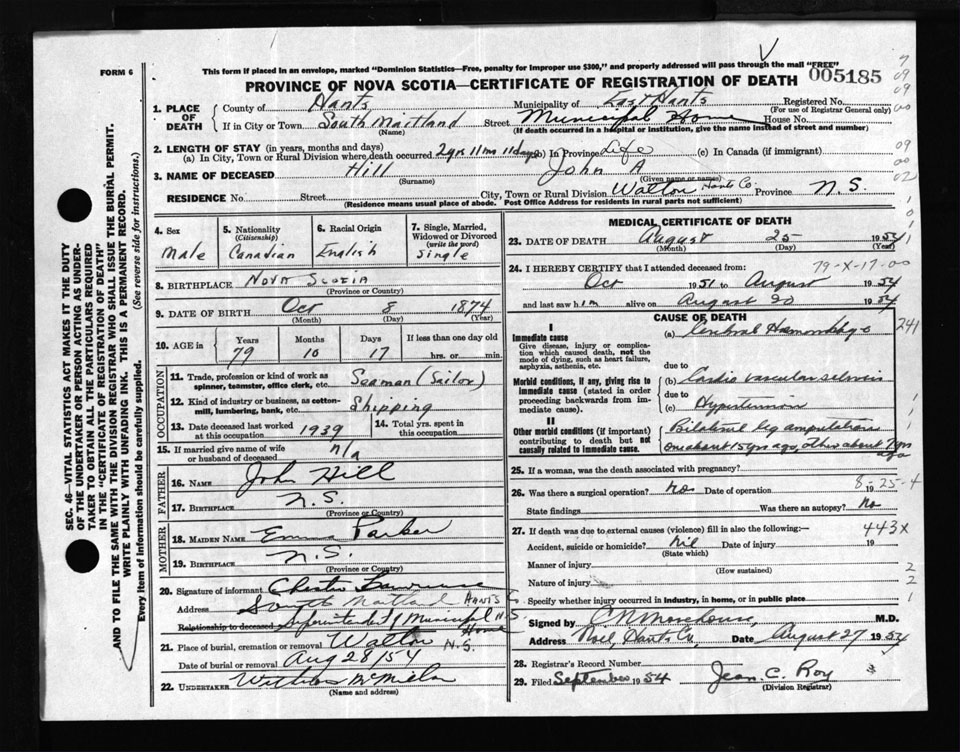 FORM 6
This form if placed in an envelope, marked "Dominion Statistics—Free, penalty for improper use $300," and properly addressed will pass through the mail "FREE"
PROVINCE OF NOVA SCOTIA—CERTIFICATE OF REGISTRATION OF DEATH 005185
1. PLACE OF DEATH
County of Hants Municipality of East Hants Registered No.
(For use of Registrar General only)
If in City or Town South Maitland Street Municipal Home House No.
(Name) (If death occurred in a hospital or institution, give the name instead of street and number)
2. LENGTH OF STAY (in years, months and days)
(a) In City, Town or Rural Division where death occurred 2 yrs 11 ms 11 days (b) In Province Life (c) In Canada (if immigrant)
3. NAME OF DECEASED Hill John A
(Surname) (Given name or names)
RESIDENCE No. Street City, Town or Rural Division Walton Hants Co. Province N.S.
(Residence means usual place of abode. Post Office Address for residents in rural parts not sufficient)
4. Sex Male
5. Nationality (Citizenship) Canadian
6. Racial Origin English
7. Single, Married, Widowed or Divorced (write the word) Single
8. BIRTHPLACE Nova Scotia
(Province or Country)
9. DATE OF BIRTH Oct 8 1874
(Month) (Day) (Year)
10. AGE in Years Months Days If less than one day old
79 10 17 hrs. or min.
OCCUPATION
11. Trade, profession or kind of work as spinner, teamster, office clerk, etc. Seaman (Sailor)
12. Kind of industry or business, as cotton-mill, lumbering, bank, etc. Shipping
13. Date deceased last worked at this occupation 1939
14. Total yrs. spent in this occupation
15. If married give name of wife or husband of deceased n/a
FATHER
16. NAME John Hill
17. BIRTHPLACE N.S.
(Province or Country)
MOTHER
18. MAIDEN NAME Emma Parker
19. BIRTHPLACE N.S.
(Province or Country)
20. Signature of informant Chester
Address South Maitland Hants
Relationship to deceased Superintendent Municipal Home N.S.
21. Place of burial, cremation or removal Walton N.S.
Date of burial or removal Aug 28/54
22. UNDERTAKER
(Name and address)
MEDICAL CERTIFICATE OF DEATH
23. DATE OF DEATH August 25 1954
(Month) (Day) (Year)
79-X-17-00
24. I HEREBY CERTIFY that I attended deceased from:
Oct 1951 to August 1954
and last saw him alive on August 20 1954
CAUSE OF DEATH
I
Immediate cause
Give disease, injury or complication which caused death, not the mode of dying, such as heart failure, asphyxia, asthenia, etc.
(a) Cerebral Hemorrhage 241
due to
Morbid conditions, if any, giving rise to immediate cause (stated in order proceeding backwards from immediate cause).
(b) Cardio vascular
due to
(c) Hypertension
II
Other morbid conditions (if important) contributing to death but not causally related to immediate cause.
Bilateral leg amputations
one about 15 yrs ago, other about 7 yrs ago
25. If a woman, was the death associated with pregnancy?
8-25-4
26. Was there a surgical operation? No Date of operation 19
State findings Was there an autopsy? No
27. If death was due to external causes (violence) fill in also the following:— 443X
Accident, suicide or homicide? Nil Date of injury 19
(State which)
Manner of injury
(How sustained)
Nature of injury
Specify whether injury occurred in industry, in home, or in public place
Signed by C N Morehouse, M.D.
Address Noel, Hants Co. Date August 27 1954
28. Registrar's Record Number
29. Filed September 1954 Jean. C. Roy
(Division Registrar)
SEC. 46—VITAL STATISTICS ACT MAKES IT THE DUTY
OF THE UNDERTAKER OR PERSON ACTING AS UNDER-
TAKER TO OBTAIN ALL THE PARTICULARS REQUIRED
IN THE "CERTIFICATE OF REGISTRATION OF DEATH"
AND TO FILE THE SAME WITH THE DIVISION REGISTRAR WHO SHALL ISSUE THE BURIAL PERMIT.
WRITE PLAINLY WITH UNFADING INK. THIS IS A PERMANENT RECORD.
Every item of information should be carefully supplied. (See reverse side for instructions.)